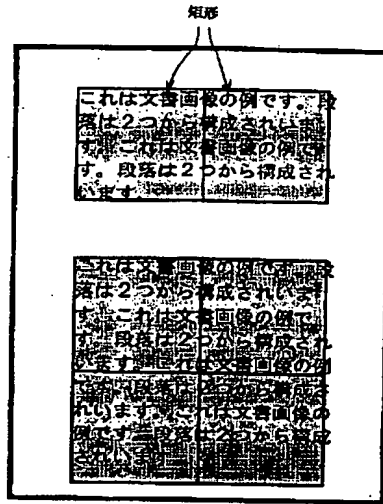 矩形
これは文書画像の例です。段
落は2つから構成されいま
す。これは文書画像の例で
す。段落は2つから構成され
います。
これは文書画像の例です。段
落は2つから構成されいま
す。これは文書画像の例で
す。段落は2つから構成され
います。これは文書画像の例
です。段落は2つから構成さ
れいます。これは文書画像の
例です。段落は2つから構成
されいま